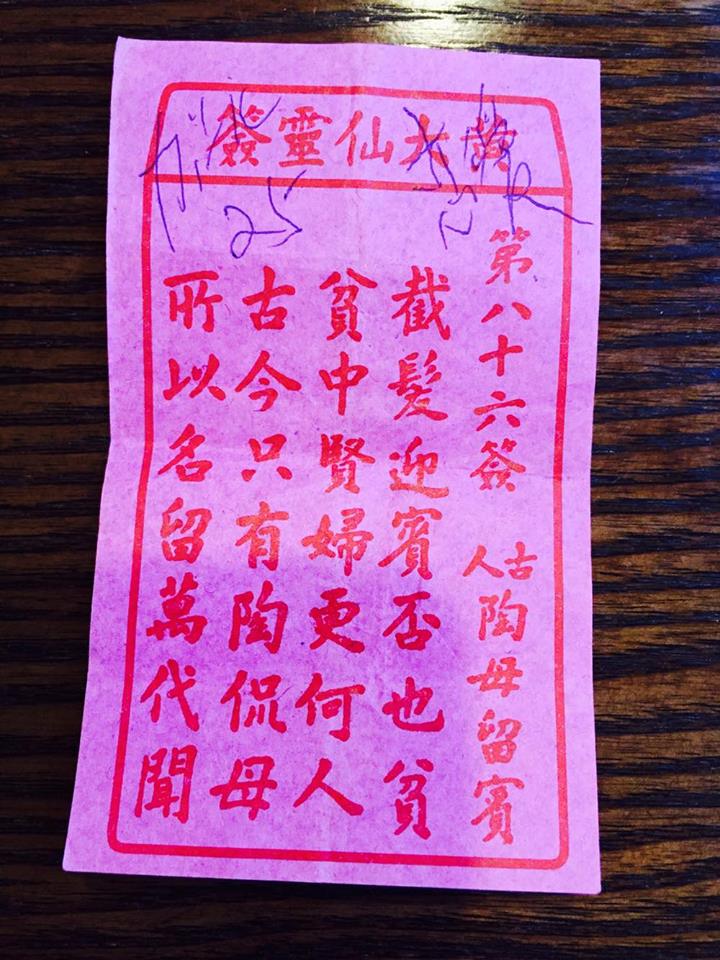 黃大仙靈簽
25
第八十六簽 古人 陶母留賓
截髮迎賓否也貧
貧中賢婦更何人
古今只有陶侃母
所以名留萬代聞